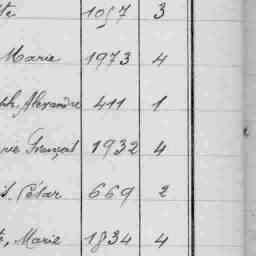 te 1057 3
Marie 1973 4
ph, Alexandre 411 1
rie François 1932 4
s. César 669 2
e, Marie 1834 4